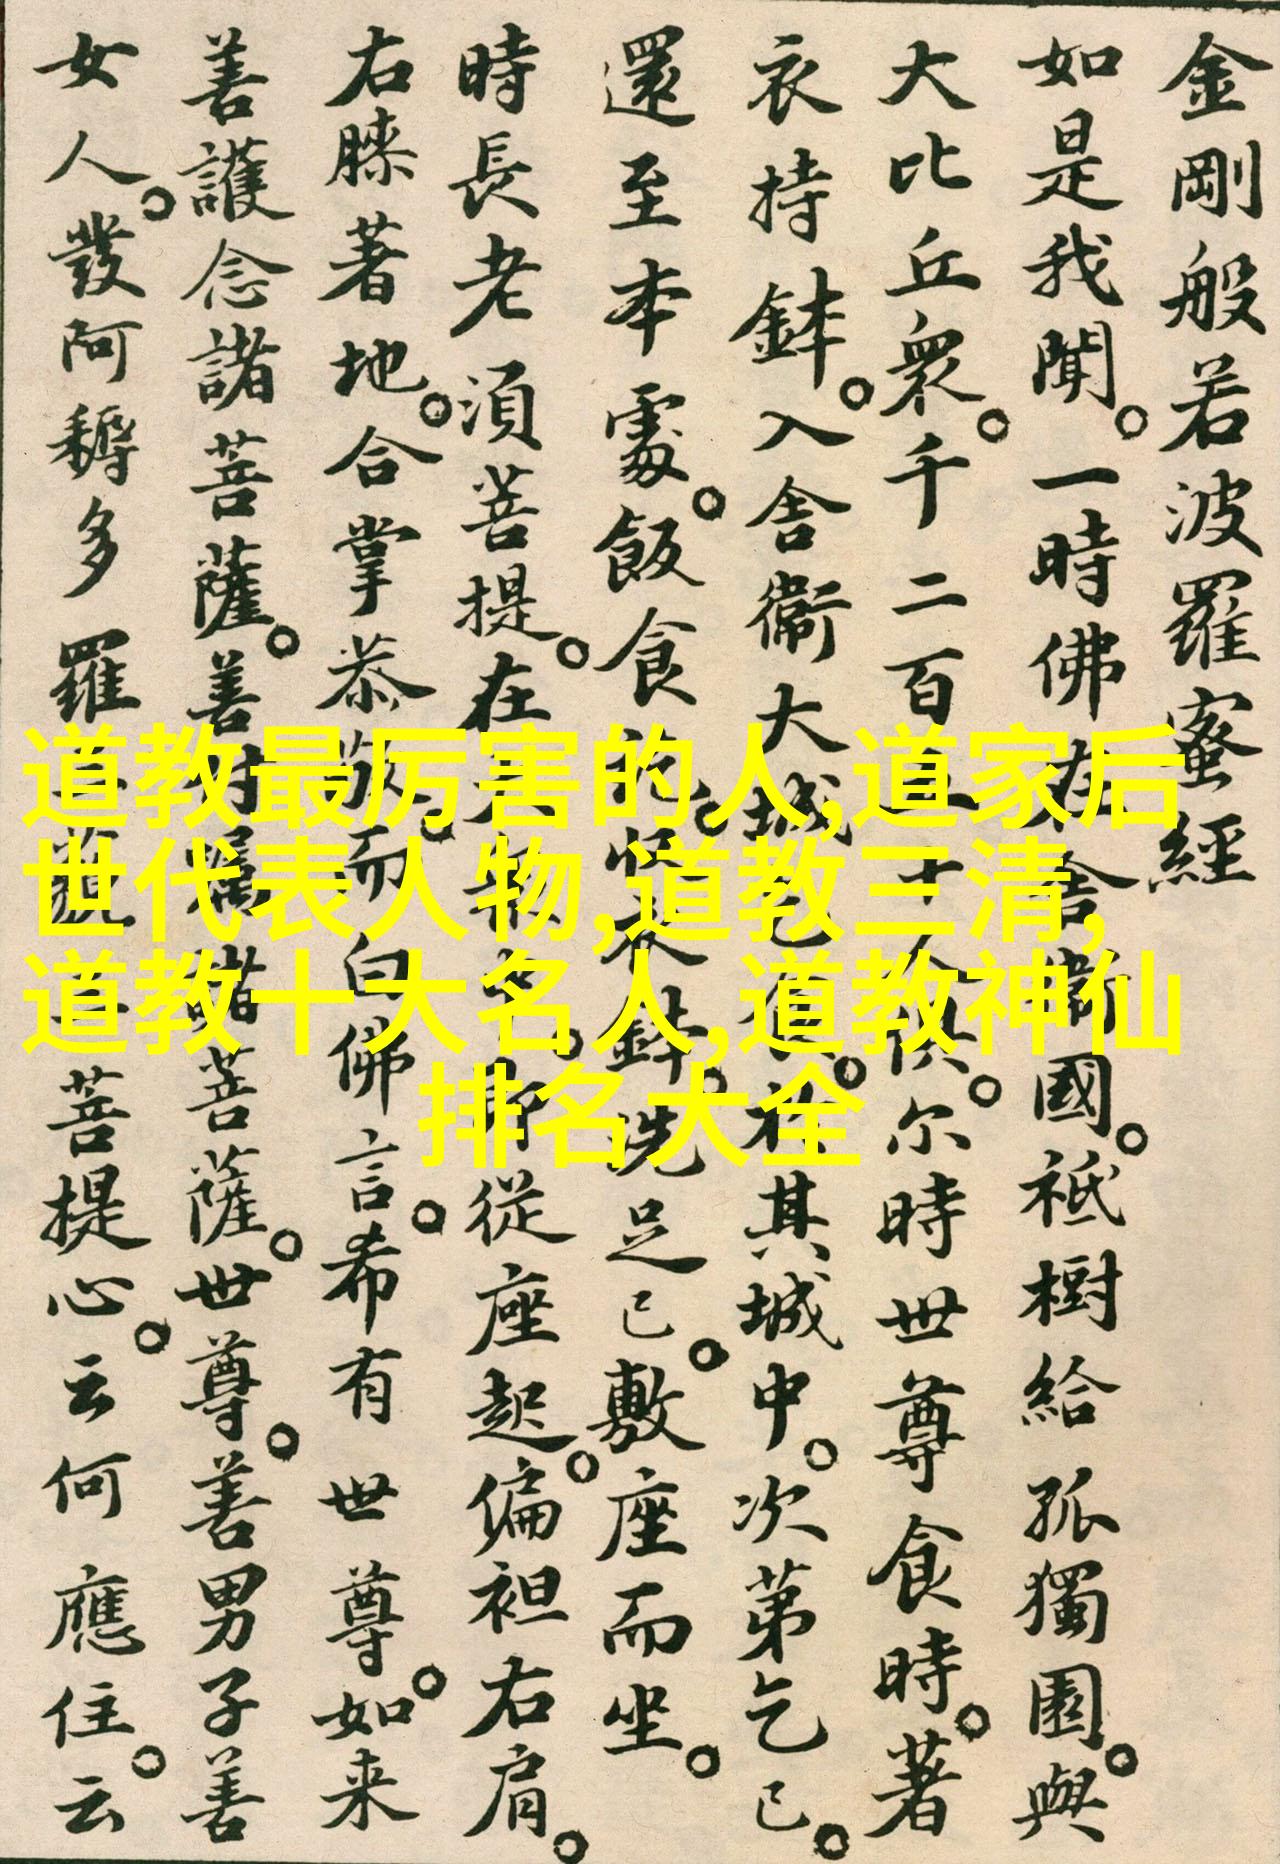 金剛般若波羅蜜經
如是我聞。一時佛在舍衛國。祇樹給孤獨園。與
大比丘衆。千二百五十人俱。尔時世尊食時。著
衣持鉢。入舍衛大城乞食。於其城中。次第乞已。
還至本處。飯食訖。收衣鉢。洗足已。敷座而坐。
時長老須菩提。在大衆中。即從座起。偏袒右肩。
右膝著地。合掌恭敬。而白佛言。希有世尊。如来
善護念諸菩薩。善付囑諸菩薩。世尊。善男子善
女人。發阿耨多羅三藐三菩提心。云何應住。云
道教最厉害的人,道家后
世代表人物,道教三清,
道教十大名人,道教神仙
排名大全